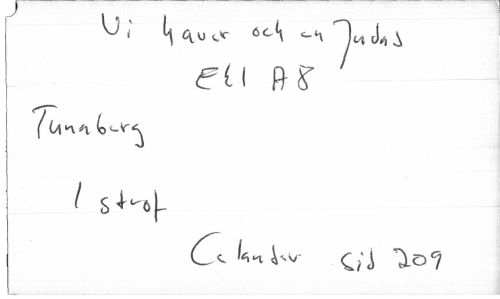 Vi haver och en Judas
EEI A8
Tunaberg
1 strof
Celander sid 209